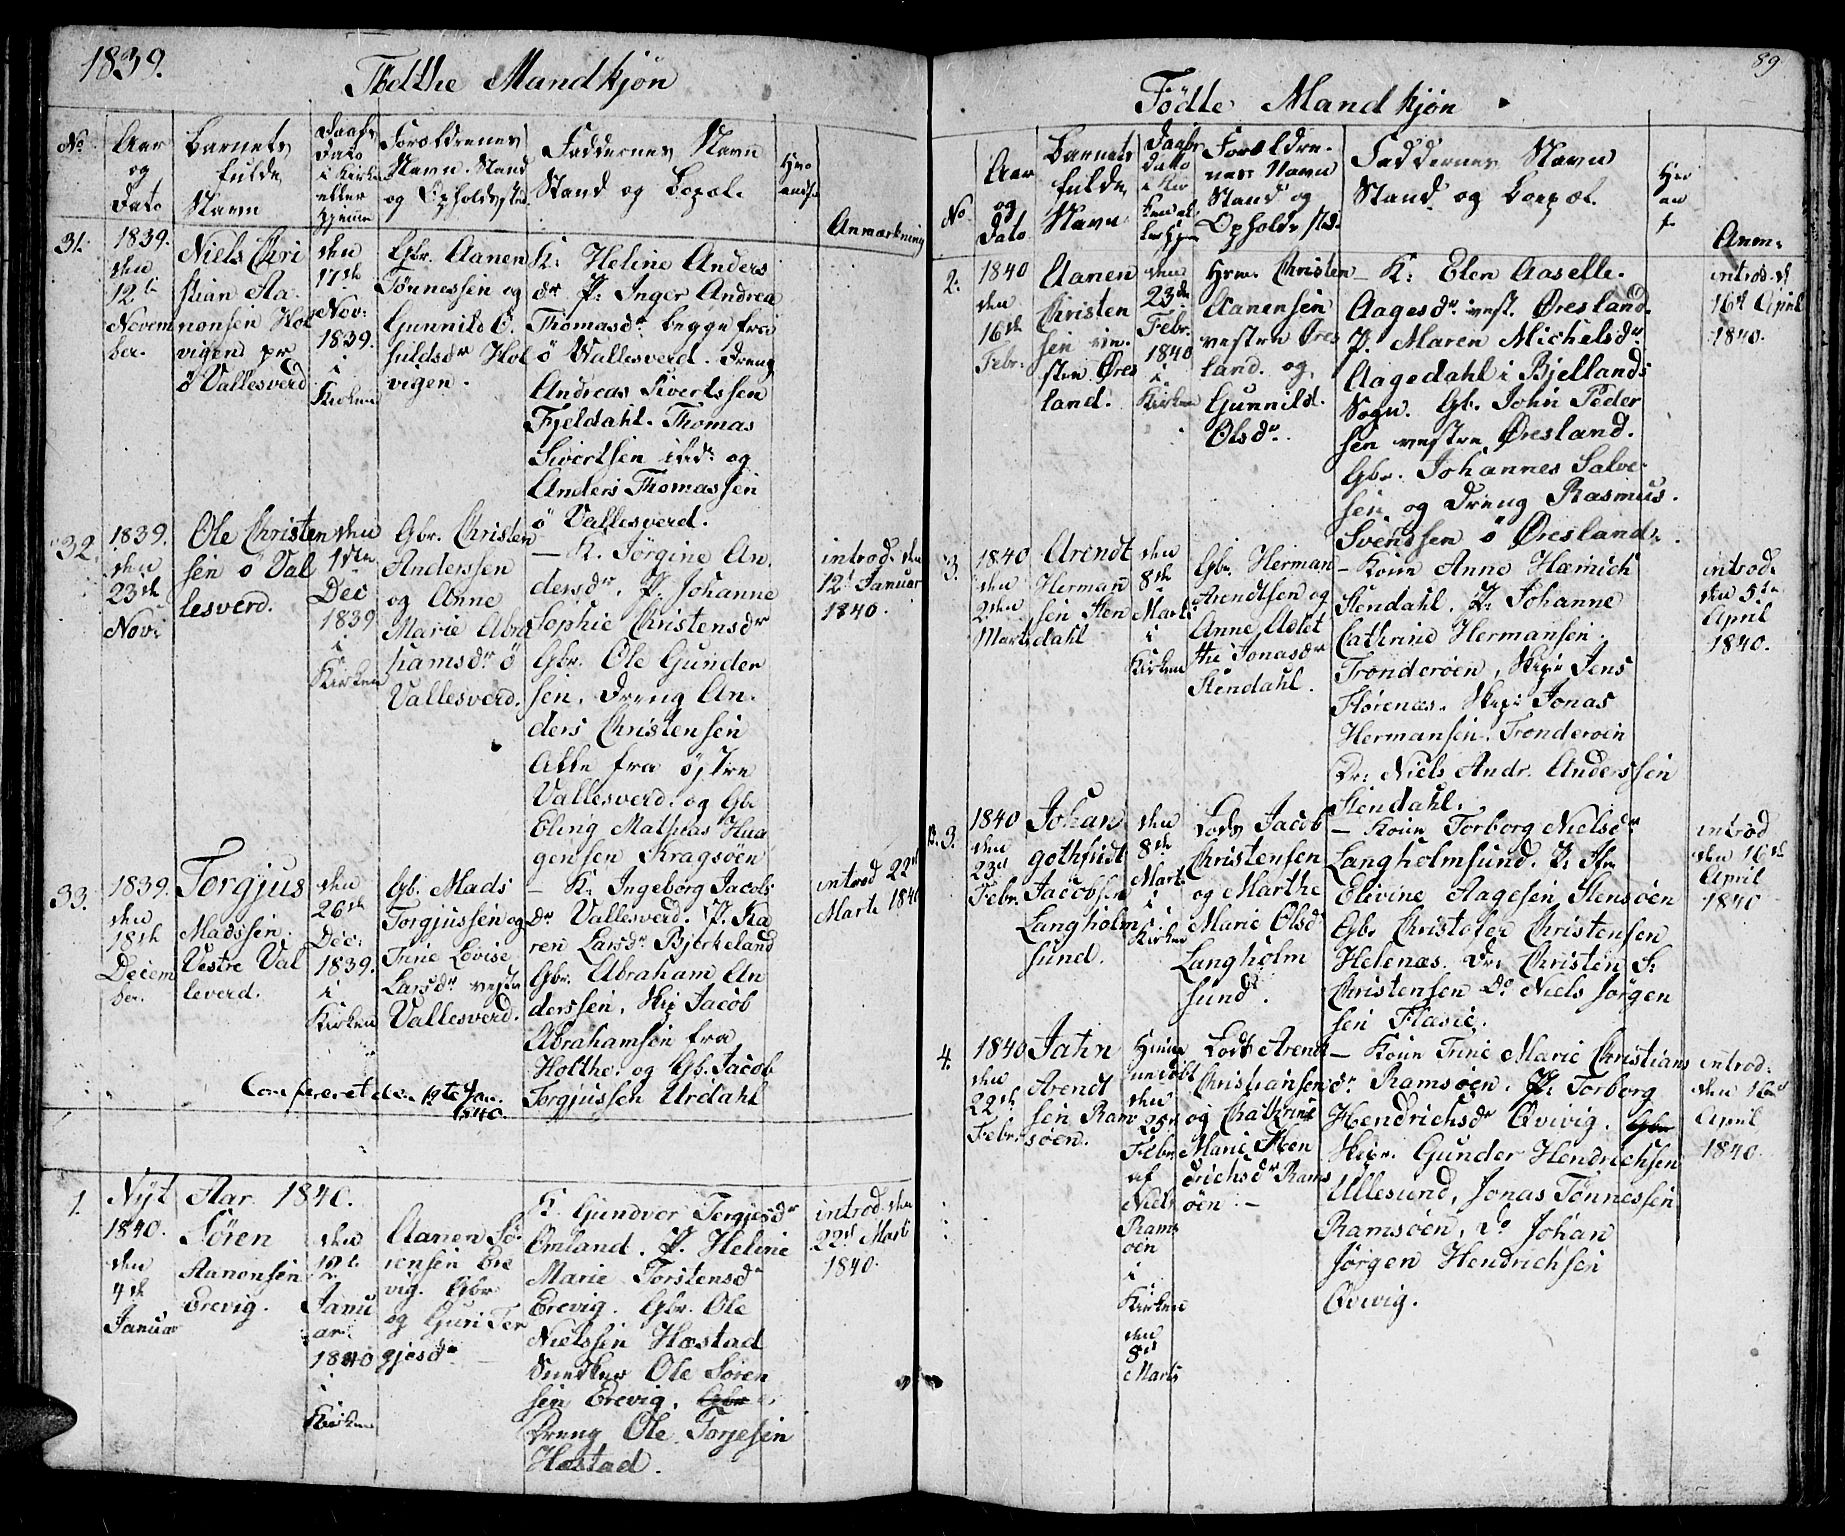 1839.
Födthe Mandkjøn
No
Aar
og
Dato
Barnets
fulde
Navn
Daabs
Dato
i Kirke
eller
hjemme
Foreldrenes
Navn. Stand
og Opholdssted
Faddernes Navn
Stand og Bopæl
Anmærkning
31.
1839.
den
12te
Novem
ber.
Niels Chri
stian Aa-
nonsen Hol
vigen pr
ö Vallesverd
den
17de
Nov:
1839.
i
Kirken
Gbr. Aanen
Tønnessen og
Gunnild G.
fuldsdr Hol
vigen.
K: Heline Anders
dr P: Inger Andrea
Thomasdr begge fra
ö Vallesverd. Dreng
Andreas Sivertssen
Fjeldahl. Thomas
Sivertsen ibd: og
Anders Thomassen
ö Vallesverd.
32.
1839.
den
23de
Nov:
Ole Christen
sen ö Val
lesverd.
den
1ste
Dec
1839
i
Kirken
Gbr. Christen
Anderssen
og Anne
Marie Abra
hamsdr ö
Vallesverd.
— K. Jörgine An.
dersdr. P. Johanne
Sophie Christensdr
Gbr. Ole Gunder
sen, Dreng An.
ders Christensen
Alle fra östre
Vallesverd. og Gb.
Elling Mathias Haa
gensen Kragsöen
introd. den
12t Januar
1840.
33.
1839.
den
18de
Decem
ber.
Torgjus
Madssen.
Vestre Val
leverd.
den
26de
Dec:
1839.
i
Kirken
Gb. Mads
Torgjussen og
Trine Lovise
Larsdr vestre
Vallesverd.
— K: Ingeborg Jacobs
dr Vallesverd. P. Ka
ren Larsdr Bjørkeland
Gbr. Abraham An
derssen, Skip Jacob
Abrahamsön fra
Holthe. og Gb. Jacob
Torgjussen Urdahl
introd 22de
Marts 1840
Confereret den 19te Jan.
1840.
Nyt Aar 1840.
1.
1840.
den
4de
Januar
Sören
Aanonsen
Erevig.
den
12te
Janu
ar
1840
i
Kirken
Aanen Sö-
rensen Ere
vig. Gbr
og Guri Ter
gjesdr
K. Gundvor Tergjesdr
Omland. P. Heline
Marie Torstensdr
Erevig. Gbr. Ole
Nielssen Hæstad
Snedker Ole Sören
sen Erevig. Gbr
Dreng Ole Torjesen
Hæstad.
introd. den
22de Marts
1840.
89
Födte Mandkjøn
No
Aar
og
Dato
Barnets
fulde
Navn
Daabs
Dato
i Kir
ken el
ler hjem
Foreldre-
nes Navn
Stand og
Opholds sted.
Faddernes Navn
Stand og Bopæl
Anm:
2:
1840
den
16de
Febr.
Aanen
Christen
sen ve.
stre Øres
land.
den
23de
Febr.
1840
i
Kirken
Hrm. Christen
Aanensen
vestre Øres
land. og
Gunnild
Olsdr.
— K: Elen Aaselle.
Aagesdr vest. Øresland.
P. Maren Michelsdr
Aagedahl i Bjellands
Sogn. Gb. John Peder
sen vestre Øresland.
Gbr. Johannes Salve-
sen og Dreng Rasmus
Svendsen ö Øresland.
introd. d
16de April
1840.
3.
1840
den
2den
Marts
Arendt
Herman
sen Sten
dahl
den
8de
Marts
i
Kirken
Gbr. Herman
Arendtsen og
Anne Adet
the Jonasdr
Stendahl.
— Kone Anne Hæmich
Stendahl. P. Johanne
Cathrine Hermansen.
Tronderöen, Skip Jens
Flörenæs. Skip Jonas
Hermansen. Tronderöen
Dr: Niels Andr. Anderssen
Stendahl.
introd.
den 5te
April
1840.
B. 3.
1840
den
23de
Febr.
Johan
gothfridt
Jacobsen
Langholm
sund.
den
8de
Marts
i
Kirken
Lods Jacob
Christensen
og Marthe
Marie Olsd
Langholm
sund.
— Kone Torborg Nielsdr
Langholmsund. P. Jfr
Elivine Aagesen Stensöen
Gbr Christofer Christensen
Helenæs. Dr: Christen S:
Christensen Do Niels Jörgen
sen Flasie.
introd
den 16de
April
1840
4.
1840
den
22de
Febr.
Jahn
Arendt
sen Ram
söen.
Hjem
medöbt
den
25de
Febr.
af
Niels
Rams
öen
i
Kirken
den
8de
Marts
Lods Arendt
Christiansen
og Cathrine
Marie Hen
drichsdr Rams
öen. —
— Kone Trine Marie Christians
dr Ramsöen. P. Torborg
Hendrichsdr Qvivig. Gbr
Skipr. Gunder Hendrichsen
Ullesund, Jonas Tönnessen
Ramsöen, Do Johan
Jörgen Hendrichsen
Qvivig.
introd.
den 16de
April
1840.